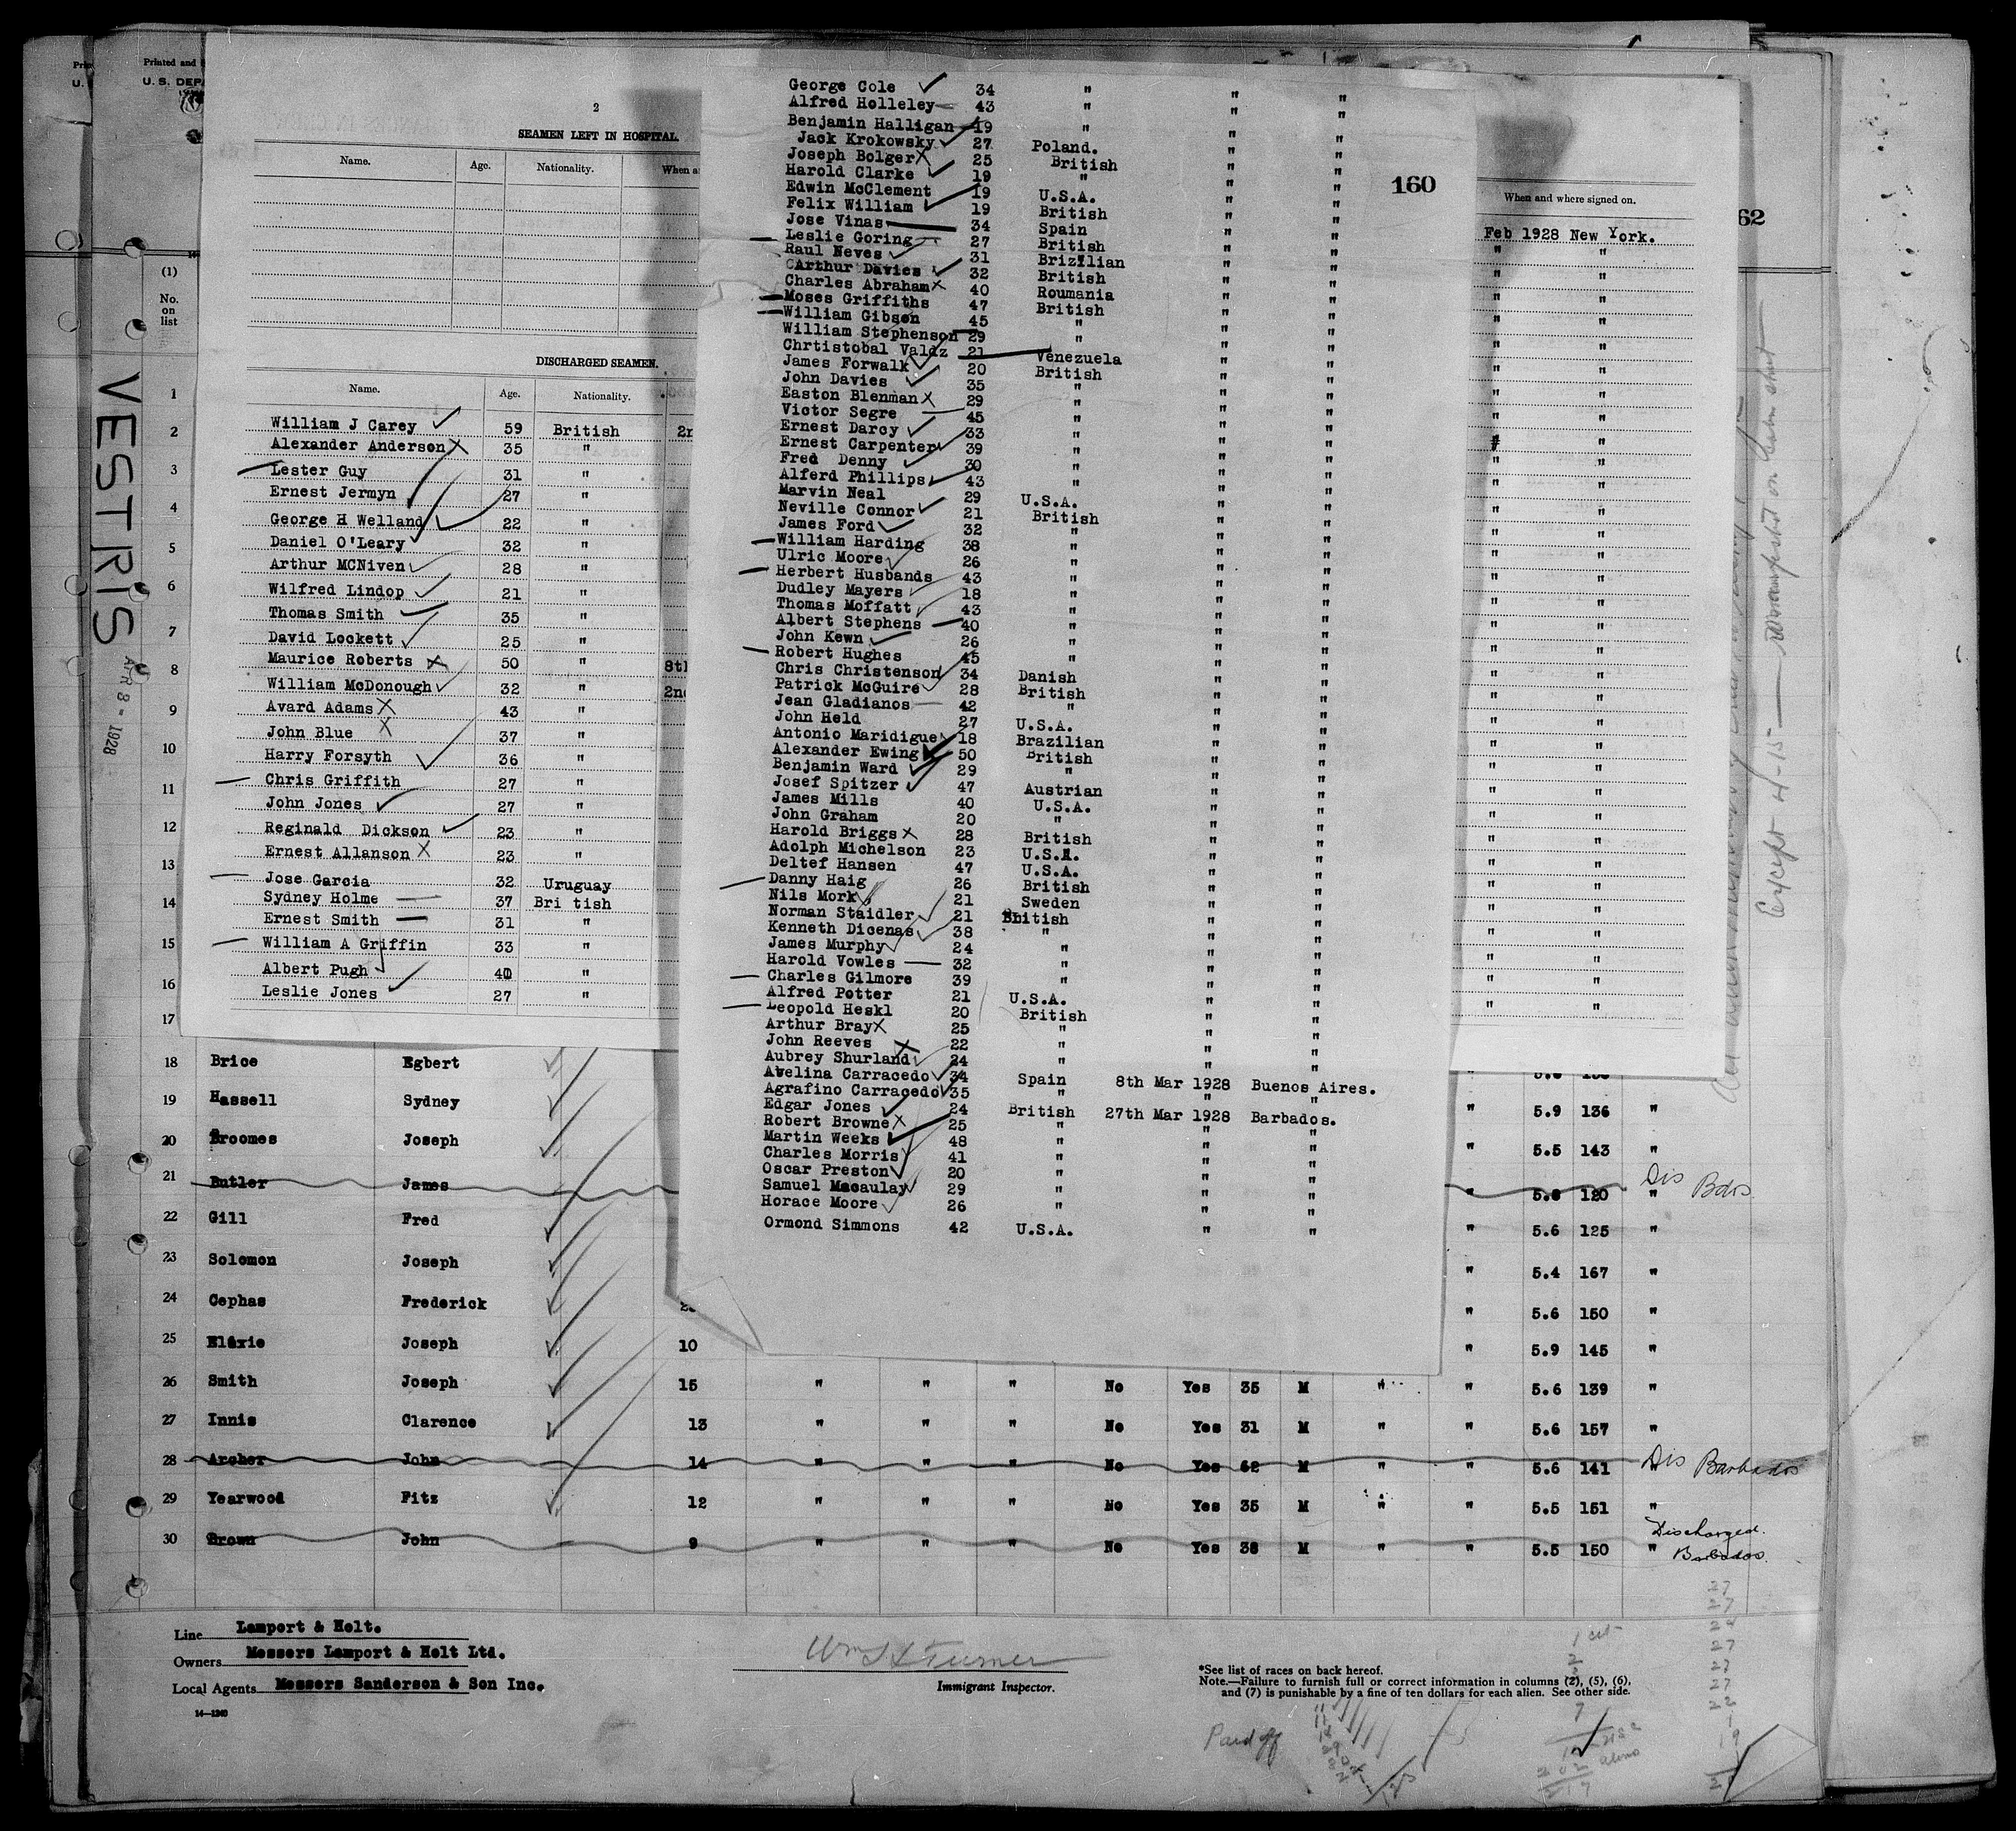 Printed and
U. S. DEPA
2
SEAMEN LEFT IN HOSPITAL.
Name. Age. Nationality. When a
DISCHARGED SEAMEN.
Name. Age. Nationality.
William J Carey 59 British 2n
Alexander Anderson 35 "
Lester Guy 31 "
Ernest Jermyn 27 "
George H Welland 22 "
Daniel O'Leary 32 "
Arthur MCNiven 28 "
Wilfred Lindop 21 "
Thomas Smith 35 "
David Lockett 25 "
Maurice Roberts 50 " 8th
William McDonough 32 " 2nd
Avard Adams 43 "
John Blue 37 "
Harry Forsyth 36 "
Chris Griffith 27 "
John Jones 27 "
Reginald Dickson 23 "
Ernest Allanson 23 "
Jose Garcia 32 Uruguay
Sydney Holme 37 Bri tish
Ernest Smith 31 "
William A Griffin 33 "
Albert Pugh "
Leslie Jones 27 "
George Cole 34 " " "
Alfred Holleley 43 " " "
Benjamin Halligan 19 " " "
Jack Krokowsky 27 Poland. " "
Joseph Bolger 25 British " "
Harold Clarke 19 " " "
Edwin McClement 19 U.S.A. " "
Felix William 19 British " "
Jose Vinas 34 Spain " "
Leslie Goring 27 British " "
Raul Neves 31 Brizilian " "
Arthur Davies 32 British " "
Charles Abraham 40 Roumania " "
Moses Griffiths 47 British " "
William Gibson 45 " " "
William Stephenson 29 " " "
Chrtistobal Valdz 21 Venezuela " "
James Forwalk 20 British " "
John Davies 35 " " "
Easton Blenman 29 " " "
Victor Segre 45 " " "
Ernest Darcy 33 " " "
Ernest Carpenter 39 " " "
Fred Denny 30 " " "
Alferd Phillips 43 " " "
Marvin Neal 29 U.S.A. " "
Neville Connor 21 British " "
James Ford 32 " " "
William Harding 38 " " "
Ulric Moore 26 " " "
Herbert Husbands 43 " " "
Dudley Mayers 18 " " "
Thomas Moffatt 43 " " "
Albert Stephens 40 " " "
John Kewn 26 " " "
Robert Hughes 45 " " "
Chris Christenson 34 Danish " "
Patrick McGuire 28 British " "
Jean Gladianos 42 " " "
John Held 27 U.S.A. " "
Antonio Maridigue 18 Brazilian " "
Alexander Ewing 50 British " "
Benjamin Ward 29 " " "
Josef Spitzer 47 Austrian " "
James Mills 40 U.S.A. " "
John Graham 20 " " "
Harold Briggs 28 British " "
Adolph Michelson 23 U.S.A. " "
Deltef Hansen 47 U.S.A. " "
Danny Haig 26 British " "
Nils Mork 21 Sweden " "
Norman Staidler 21 British " "
Kenneth Dicenas 38 " " "
James Murphy 24 " " "
Harold Vowles 32 " " "
Charles Gilmore 39 " " "
Alfred Potter 21 U.S.A. " "
Leopold Heskl 20 British " "
Arthur Bray 25 " " "
John Reeves 22 " " "
Aubrey Shurland 24 " " "
Avelina Carracedo 34 Spain 8th Mar 1928 Buenos Aires.
Agrafino Carracedo 35 " " "
Edgar Jones 24 British 27th Mar 1928 Barbados.
Robert Browne 25 " " "
Martin Weeks 48 " " "
Charles Morris 41 " " "
Oscar Preston 20 " " "
Samuel Macaulay 29 " " "
Horace Moore 26 " " "
Ormond Simmons 42 U.S.A. " "
160
When and where signed on.
Feb 1928 New York.
62
(1)
No.
on
list
VESTRIS
APR 8 - 1928
1
2
3
4
5
6
7
8
9
10
11
12
13
14
15
16
17
18 Brice Egbert
19 Hassell Sydney " 5.9 136 "
20 Broomes Joseph " 5.5 143 "
21 Butler James " 5.8 120 " Dis Bdos
22 Gill Fred " 5.6 125 "
23 Solomon Joseph " 5.4 167 "
24 Cephas Frederick " 5.6 150 "
25 Eluxie Joseph 10 " 5.9 145 "
26 Smith Joseph 15 " " " No Yes 35 M " " 5.6 139 "
27 Innis Clarence 13 " " " No Yes 31 M " " 5.6 157 "
28 Archer John 14 " " " No Yes 62 M " " 5.6 141 " Dis Barbados
29 Yearwood Fitz 12 " " " No Yes 35 M " " 5.5 151 "
30 Brown John 9 " " " No Yes 38 M " " 5.5 150 " Discharged. Barbados.
Except 4-15 — manifested on
Line Lamport & Holt.
Owners Messers Lamport & Holt Ltd.
Local Agents Messers Sanderson & Son Inc.
14—1240
Immigrant Inspector.
*See list of races on back hereof.
Note.—Failure to furnish full or correct information in columns (2), (5), (6),
and (7) is punishable by a fine of ten dollars for each alien. See other side.
Paid off
27
27
27
27
27
27
22
1
19